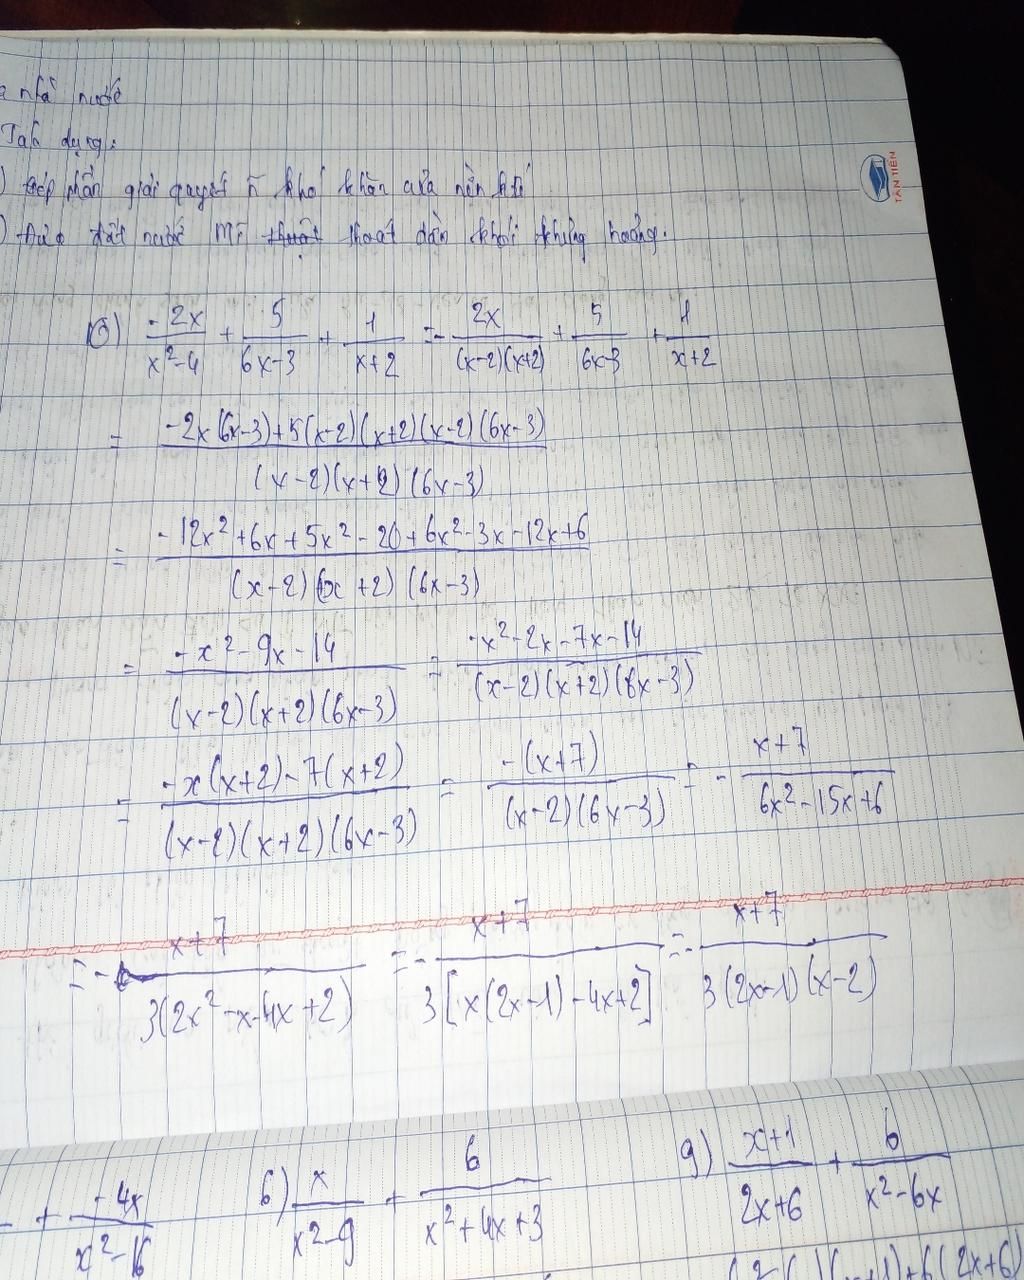 nhà nước
Tác dụng:
) Góp phần giải quyết khó khăn của nền
) Đưa đất nước Mĩ thoát dần khỏi khủng hoảng.
TÂN TIẾN
6) -2x/(x²-4) + 5/(6x-3) + 1/(x+2) = - 2x/((x-2)(x+2)) + 5/(6x-3) + 1/(x+2)
= (-2x(6x-3)+5(x-2)(x+2)(x-2)(6x-3))/((x-2)(x+2)(6x-3))
= (-12x²+6x+5x²-20+6x²-3x-12x+6)/((x-2)(x+2)(6x-3))
= (-x²-9x-14)/((x-2)(x+2)(6x-3)) = (-x²-2x-7x-14)/((x-2)(x+2)(6x-3))
= (-x(x+2)-7(x+2))/((x-2)(x+2)(6x-3)) = -(x+7)/((x-2)(6x-3)) = - (x+7)/(6x²-15x+6)
= - (x+7)/(3(2x²-x-4x+2)) = - (x+7)/(3[x(2x-1)-4x+2]) = - (x+7)/(3(2x-1)(x-2))
+ -4x/(x²-16) 6) x/(x²-9) + 6/(x²+4x+3) 9) (x+1)/(2x+6) + 6/(x²-6x)
+6(2x+6)